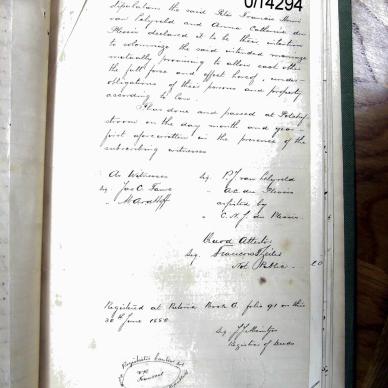 0/14294
stipulation the said Peter Francis Henri
van Lelyveld and Anna Catherine du
Plessis declared it to be their intention
to solemnize the said intended marriage
mutually promising to allow each other
the full force and effect hereof, under
obligations of their persons and property
according to law.
Thus done and passed at Potchef
stroom on the day month and year
first aforewritten in the presence of the
subscribing witnesses
As Witnesses
sg. Jas C.
" M
sg. P J van Lelyveld
" A C du Plessis
assisted by
" C. N. J. du Plessis
Quod Attestor
Sg.
Not. Public
Registered at Pretoria Book O. folio 91 on this
30th June 1880
Sg
Registrar of Deeds